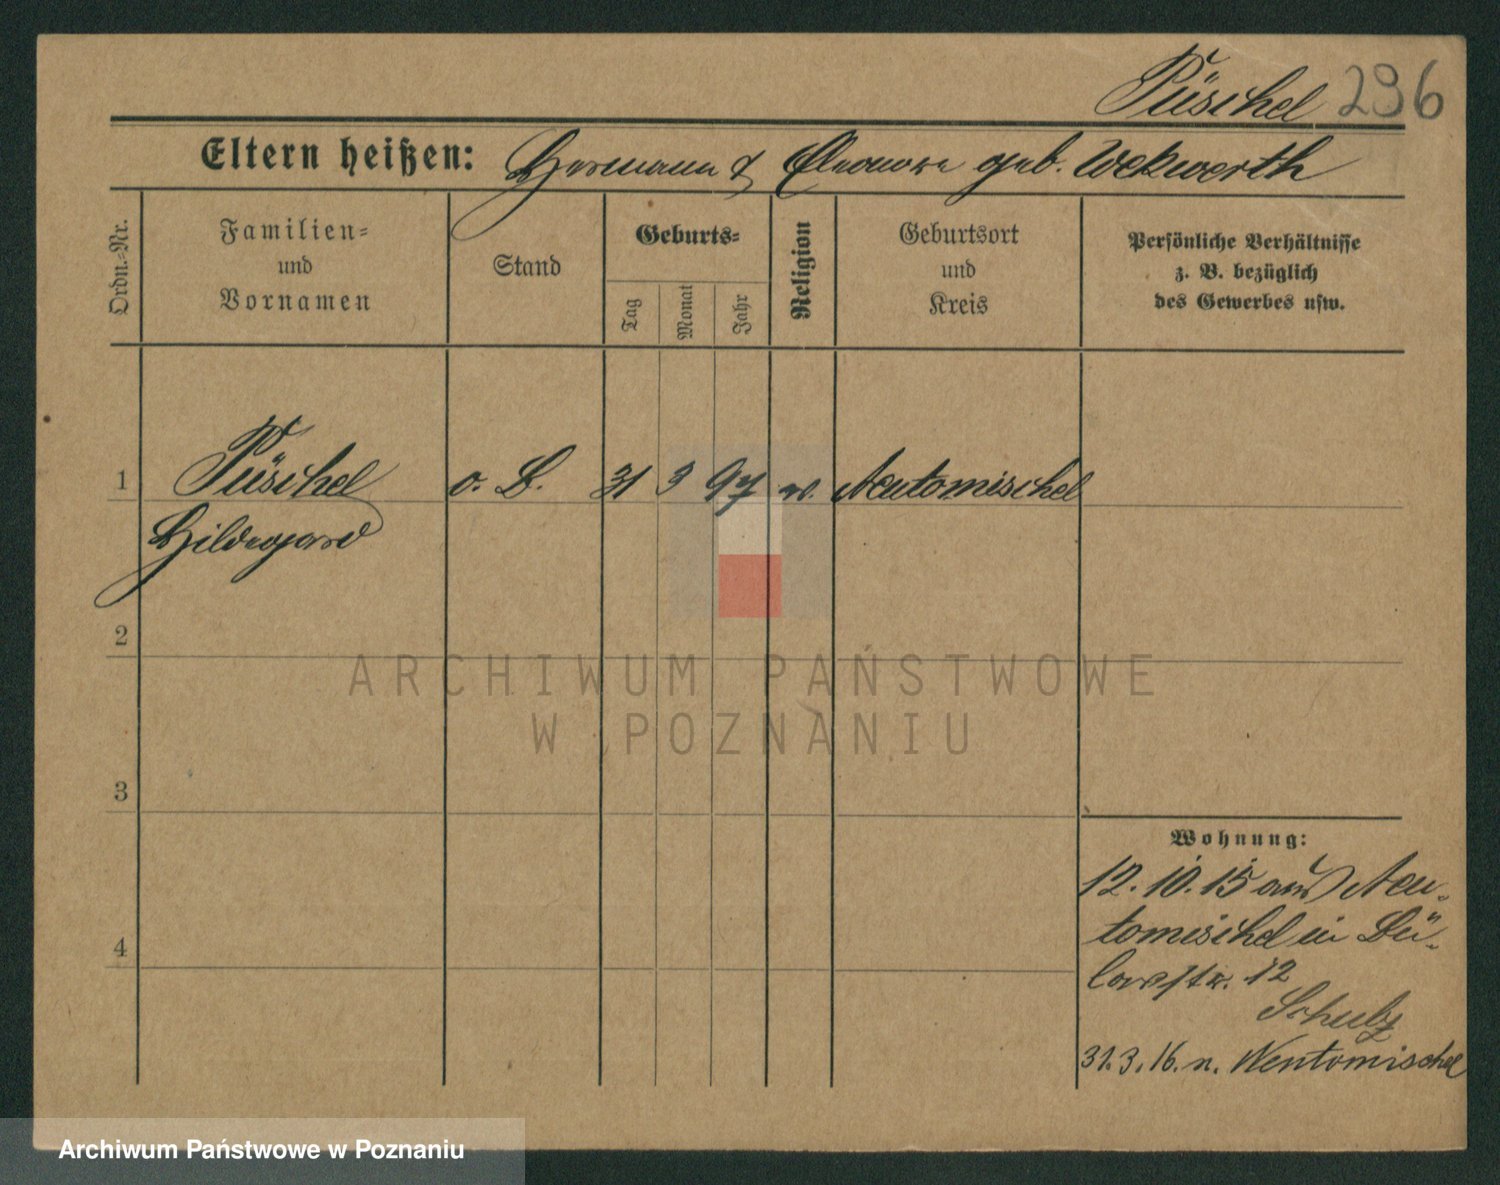 Püschel 296
Eltern heißen: Hermann & Eleonore geb. Wekwerth
Ordn.-Nr.
Familien-
und
Vornamen
Stand
Geburts-
Tag
Monat
Jahr
Religion
Geburtsort
und
Kreis
Persönliche Verhältnisse
z. B. bezüglich
des Gewerbes usw.
1 Püschel o. B. 31 3 97 ev. Neutomischel
Hildegard
2
3
4
Wohnung:
12.10.15 aus Neu-
tomischel in Bü-
lowstr. 12
Schulz
31.3.16. n. Neutomischel
ARCHIWUM PAŃSTWOWE
W POZNANIU
Archiwum Państwowe w Poznaniu